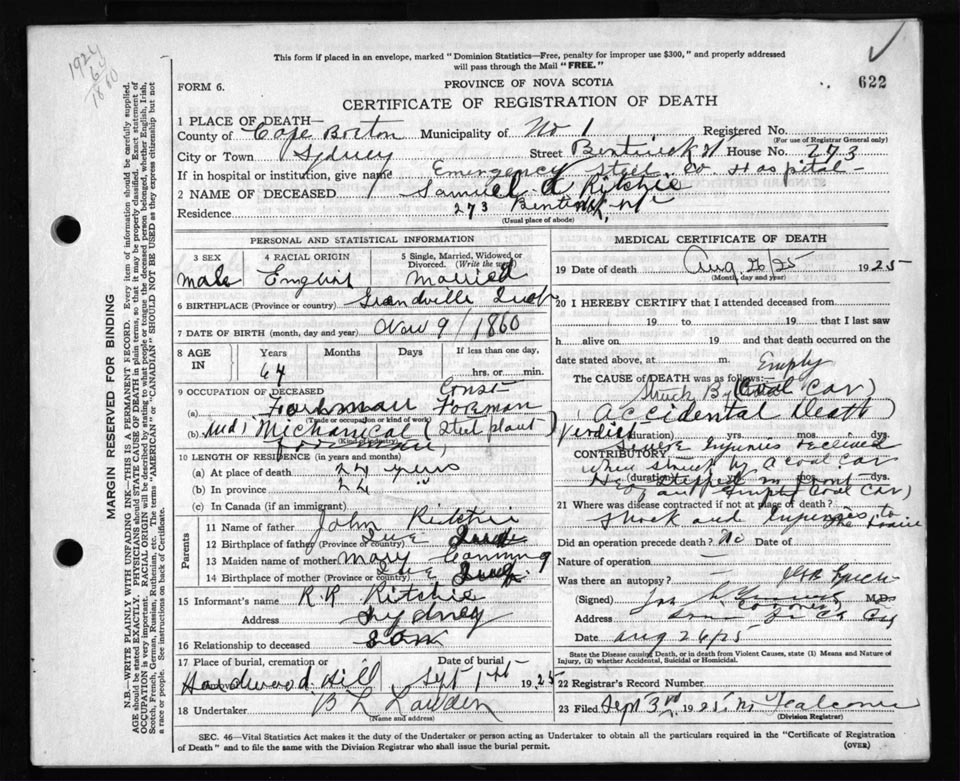 1924
60
1860
This form if placed in an envelope, marked "Dominion Statistics—Free, penalty for improper use $300," and properly addressed
will pass through the Mail "FREE."
FORM 6.
PROVINCE OF NOVA SCOTIA
622
CERTIFICATE OF REGISTRATION OF DEATH
1 PLACE OF DEATH—
County of Cape Breton Municipality of No 1 Registered No.
(For use of Registrar General only)
City or Town Sydney Street Bentinck St House No. 273
If in hospital or institution, give name Emergency Steel Co. Hospital
2 NAME OF DECEASED Samuel A Ritchie
Residence 273 Bentinck
(Usual place of abode)
PERSONAL AND STATISTICAL INFORMATION
3 SEX Male
4 RACIAL ORIGIN English
5 Single, Married, Widowed or Divorced. (Write the word) Married
6 BIRTHPLACE (Province or country) Grandville
7 DATE OF BIRTH (month, day and year) Nov 9/1860
8 AGE IN Years Months Days If less than one day,
64 hrs. or min.
9 OCCUPATION OF DECEASED Const
(a) Forman
(Trade, profession or kind of work)
(b) Mechanical (Steel plant)
(Kind of industry)
10 LENGTH OF RESIDENCE (in years and months)
(a) At place of death 24 years
(b) In province 24 "
(c) In Canada (if an immigrant)
Parents
11 Name of father John Ritchie
12 Birthplace of father (Province or country) Que
13 Maiden name of mother Mary Canning
14 Birthplace of mother (Province or country) Que
15 Informant's name R R Ritchie
Address Sydney
16 Relationship to deceased son
17 Place of burial, cremation or Date of burial
Hardwood Hill Sept 1st 1925
18 Undertaker
(Name and address)
MEDICAL CERTIFICATE OF DEATH
19 Date of death Aug 26/25 1925
(Month, day and year)
20 I HEREBY CERTIFY that I attended deceased from
19 to 19 that I last saw
h alive on 19 and that death occurred on the
date stated above, at m. Empty
The CAUSE OF DEATH was as follows:
Struck By (Coal Car)
(Accidental Death)
Verdict (duration) yrs. mos. dys.
CONTRIBUTORY Injuries received
when struck by a coal car
(duration) yrs. mos. dys.
He stepped in front
of an Empty Coal Car)
21 Where was disease contracted if not at place of death?
Shock and Injuries to
Did an operation precede death? No Date of
Nature of operation —
Was there an autopsy? —
(Signed) M.D.
Address
Date Aug 26/25
State the Disease causing Death, or in death from Violent Causes, state (1) Means and Nature of
Injury, (2) whether Accidental, Suicidal or Homicidal.
22 Registrar's Record Number
23 Filed Sept 3rd 1925
(Division Registrar)
SEC. 46—Vital Statistics Act makes it the duty of the Undertaker or person acting as Undertaker to obtain all the particulars required in the "Certificate of Registration
of Death" and to file the same with the Division Registrar who shall issue the burial permit.
(OVER)
MARGIN RESERVED FOR BINDING
N.B.—WRITE PLAINLY WITH UNFADING INK—THIS IS A PERMANENT RECORD. Every item of information should be carefully supplied.
AGE should be stated EXACTLY. PHYSICIANS should STATE CAUSE OF DEATH in plain terms, so that it may be properly classified. Exact statement of
OCCUPATION is very important. RACIAL ORIGIN will be described by stating to what people or tongue the deceased person belonged, whether English, Irish,
Scotch, French, German, Russian, Ruthenian, etc. The terms "AMERICAN" or "CANADIAN" SHOULD NOT BE USED as they express citizenship but not
a race or people. See instructions on back of Certificate.